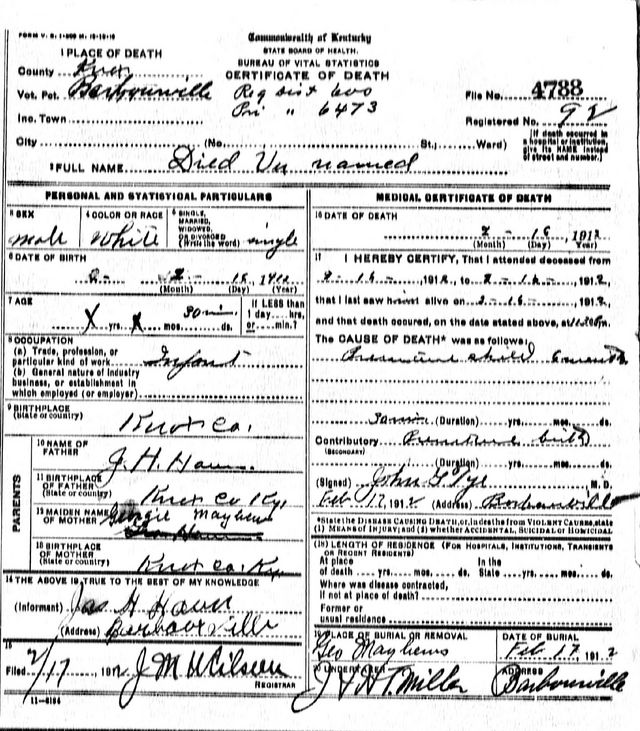 FORM V. S. 1-
Commonwealth of Kentucky
STATE BOARD OF HEALTH.
BUREAU OF VITAL STATISTICS
CERTIFICATE OF DEATH
1 PLACE OF DEATH
County Knox
Vot. Pct. Barbourville
Reg dist 600
Pri " 6473
File No. 4788
Registered No. 92
Inc. Town
City (No. St.; Ward)
[If death occurred in a hospital or institution, give its NAME instead of street and number.]
2 FULL NAME Died Un named
PERSONAL AND STATISTICAL PARTICULARS
3 SEX male
4 COLOR OR RACE White
5 SINGLE, MARRIED, WIDOWED, OR DIVORCED (Write the word) single
6 DATE OF BIRTH
2 15 1912
(Month) (Day) (Year)
7 AGE
X yrs. X mos. 30 min ds.
If LESS than 1 day hrs. or min.?
8 OCCUPATION
(a) Trade, profession, or particular kind of work Infant
(b) General nature of industry business, or establishment in which employed (or employer)
9 BIRTHPLACE
(State or country) Knox Co.
PARENTS
10 NAME OF FATHER
J. H. Haun
11 BIRTHPLACE OF FATHER
(State or country) Knox Co Ky.
12 MAIDEN NAME OF MOTHER Mayhews
13 BIRTHPLACE OF MOTHER
(State or country) Knox Co Ky.
14 THE ABOVE IS TRUE TO THE BEST OF MY KNOWLEDGE
(Informant) Jas H Haun
(Address) Barbourville
15
Filed 2/17 1912 J M Wilson
REGISTRAR
11-6184
MEDICAL CERTIFICATE OF DEATH
16 DATE OF DEATH
2 - 15, 1912
(Month) (Day) (Year)
17 I HEREBY CERTIFY, That I attended deceased from
1912, to 1912,
that I last saw him alive on 1912,
and that death occured, on the date stated above, at
The CAUSE OF DEATH* was as follows:
Premature child 6 month
30 min (Duration) yrs. mos. ds.
Contributory Premature birth
(SECONDARY)
(Duration) yrs. mos. ds.
(Signed) John M. D.
Feb 17, 1912 (Address) Barbourville
*State the DISEASE CAUSING DEATH, or, in deaths from VIOLENT CAUSES, state (1) MEANS OF INJURY; and (2) whether ACCIDENTAL, SUICIDAL or HOMICIDAL
(18) LENGTH OF RESIDENCE (FOR HOSPITALS, INSTITUTIONS, TRANSIENTS OR RECENT RESIDENTS)
At place of death yrs. mos. ds. In the State yrs. mos. ds.
Where was disease contracted, if not at place of death?
Former or usual residence
19 PLACE OF BURIAL OR REMOVAL
Geo Mayhews
DATE OF BURIAL
Feb 17 1912
20 UNDERTAKER
Miller
ADDRESS
Barbourville